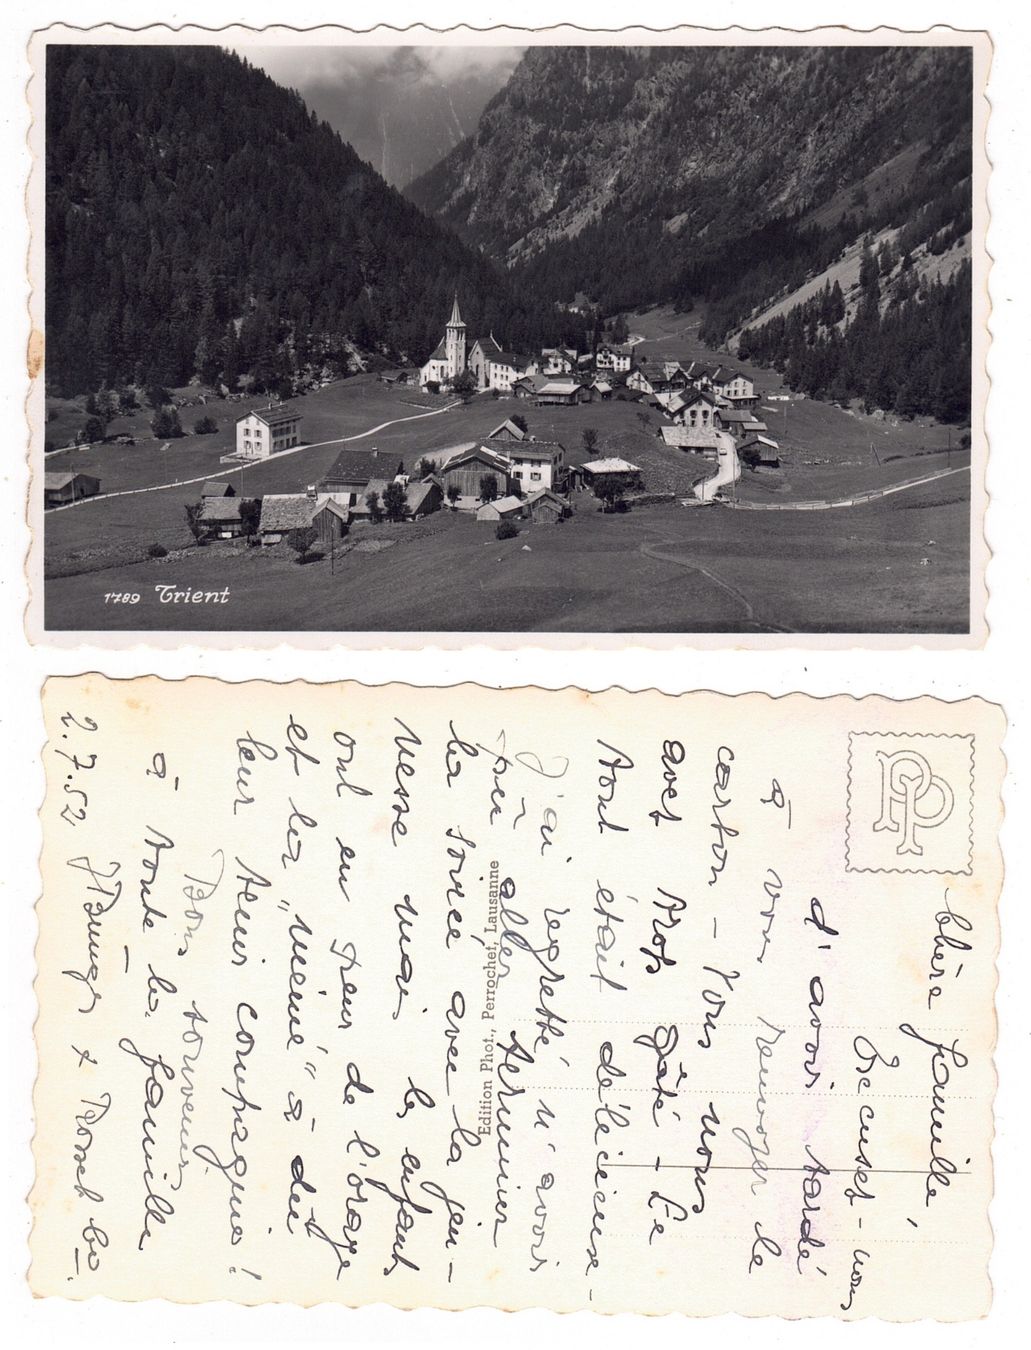 1789 Trient
Chère famille,
Excusez-nous
d'avoir tardé
à vous renvoyer le
carton - Vous nous
avez trop gâté - Le
tout était délicieuse -
J'ai regretté n'avoir
pu aller terminer
la soirée avec la jeu-
nesse mais les enfants
ont eu peur de l'orage
et la "mémé" a dû
leur tenir compagnie!
Bons souvenirs
à toute la famille
2.7.52
Edition Phot., Perrochet, Lausanne